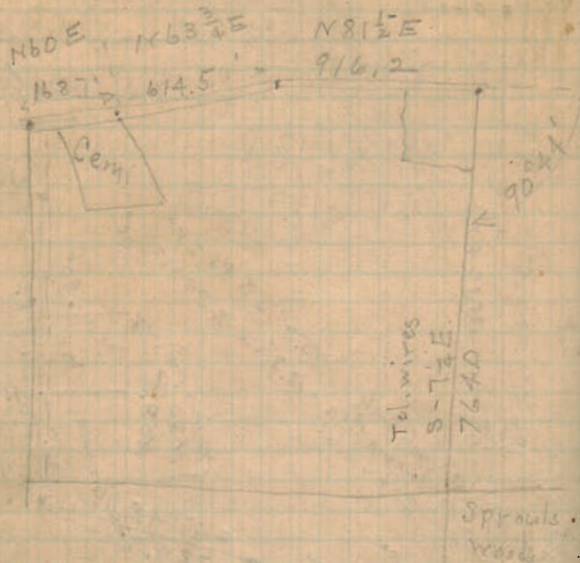 N60E
N63¾E
N81½E
168.7'
614.5'
916.2
Cem.
90°44'
Tel. wires
S-7¼E
764.0
Sprouls
Woods